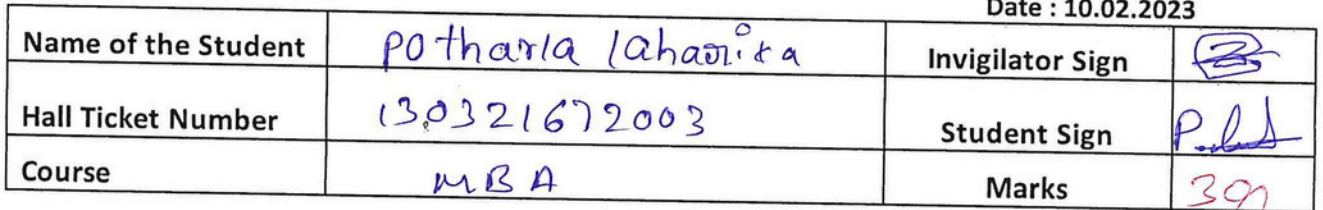 Date : 10.02.2023
Name of the Student potharla laharika Invigilator Sign
Hall Ticket Number 130321672003 Student Sign
Course MBA Marks